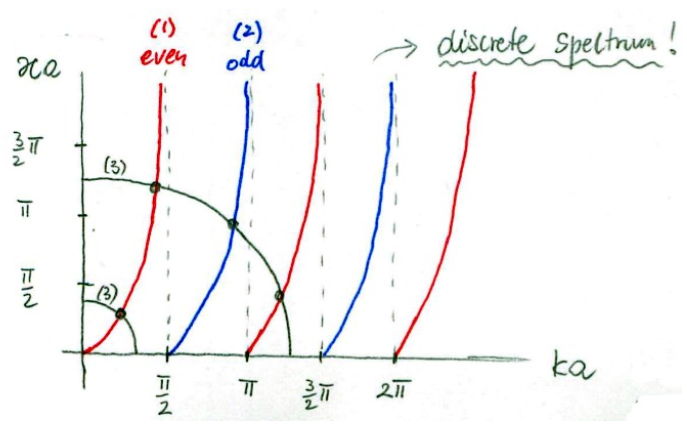 (1)
even
(2)
odd
discrete spectrum!
ϰa
3/2 π
π
π/2
(3)
(3)
π/2
π
3/2 π
2π
ka